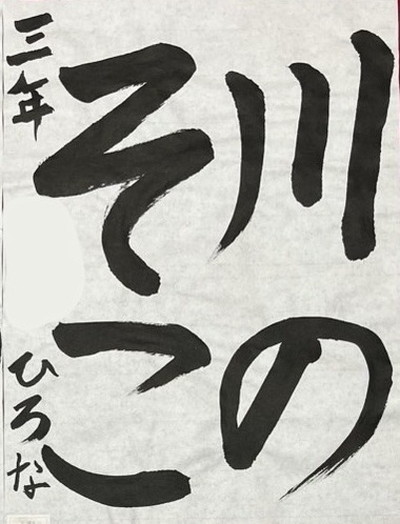 川の
そこ
三年 ひろな